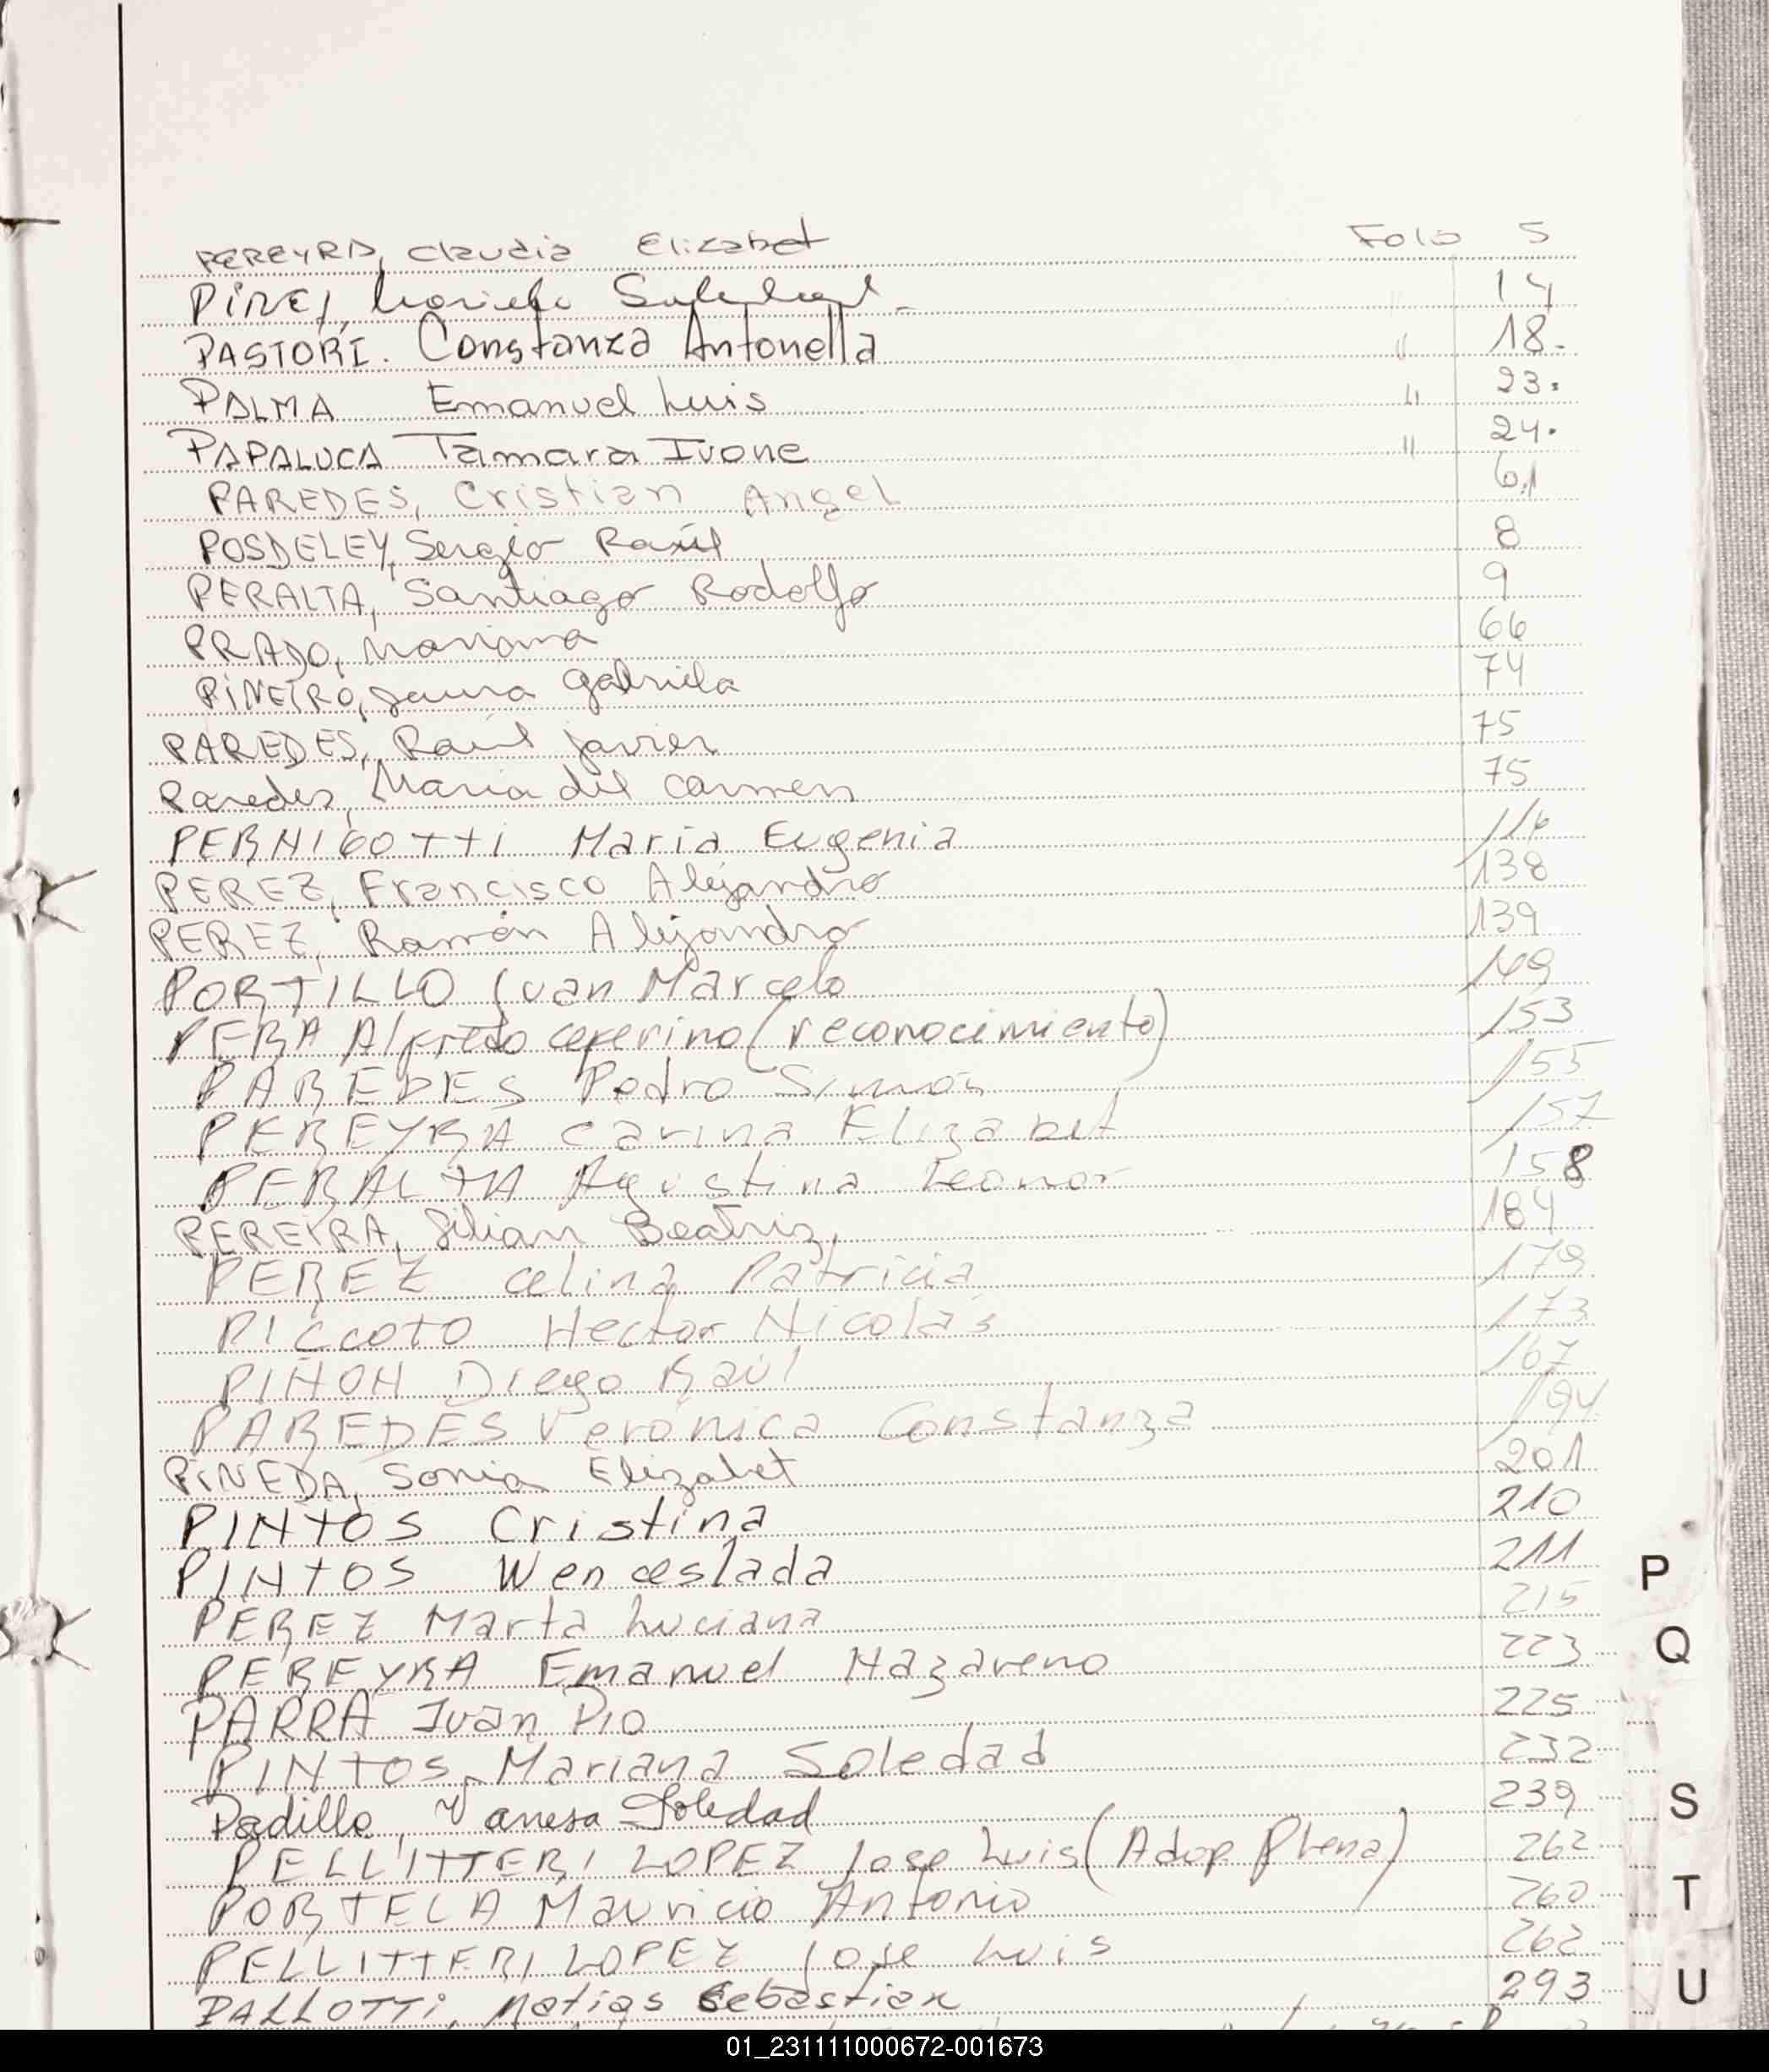 PEREYRA, Claudia Elizabet Folio 5
PINEI, 14
PASTORI. Constanza Antonella " 18.
PALMA Emanuel Luis " 23.
PAPALUCA Tamara Ivone " 24.
PAREDES, Cristian Angel 61
POSDELEY, Sergio Raúl 8
PERALTA, Santiago Rodolfo 9
PRADO, Mariana 66
PIÑEIRO, Laura Gabriela 74
PAREDES, Raúl Javier 75
Paredes, Maria del Carmen 75
PERNIGOTTI Maria Eugenia 116
PEREZ, Francisco Alejandro 138
PEREZ, Ramón Alejandro 139
PORTILLO Juan Marcelo 149
PERA Alfredo Ceferino (reconocimiento) 153
PAREDES Pedro Simón 155
PEREYRA Carina Elizabet 157
PERALTA Agustina Leonor 158
PEREYRA, Lilian Beatriz, 184
PEREZ Celina Patricia 179
PICCOTO Hector Nicolás 173
PIÑON Diego Raúl 167
PAREDES Verónica Constanza 194
PINEDA, Sonia Elizabet 201
PINTOS Cristina 210
PINTOS Wenceslada 211
P
PEREZ Marta Luciana 215
PEREYRA Emanuel Nazareno 223
Q
PARRA Juan Pio 225
PINTOS, Mariana Soledad 232
Padilla, Vanesa Soledad 239
S
PELLITTERI LOPEZ Jose Luis (Adop Plena) 262
PORTELA Mauricio Antonio 260
T
PELLITTERI LOPEZ Jose Luis 262
PALLOTTI, Matias Sebastian 293
U
01_231111000672-001673